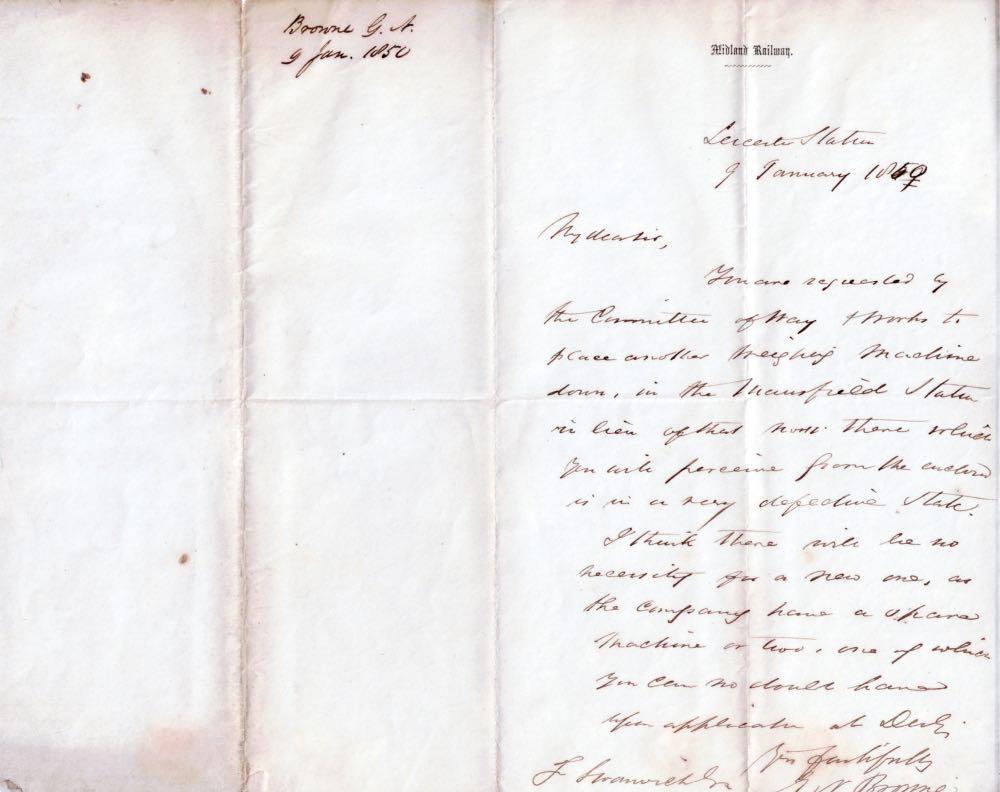 Browne G. N.
9 Jan. 1850
Midland Railway.
Leicester Station
9 January 1850
My dear Sir,
You are requested by
the Committee of Way & Works to
place another Weighing Machine
down, in the Mansfield Station
in lieu of that now there which
you will perceive from the enclosed
is in a very defective State.
I think there will be no
necessity for a new one, as
the company have a spare
Machine or two, one of which
you can no doubt have
upon application at Derby.
Yrs faithfully
F Swanwick Esq G N Browne